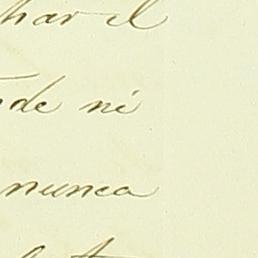 har el
de ni
nunca